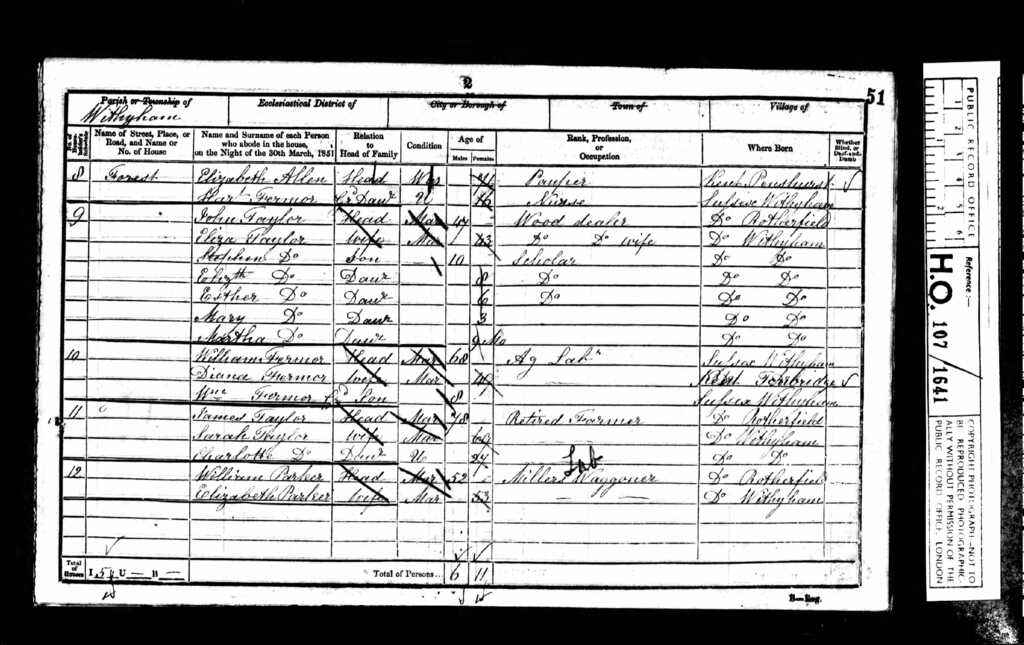 2
51
Parish or Township of Ecclesiastical District of City or Borough of Town of Village of
Withyham
No. of House-holder's Schedule Name of Street, Place, or Road, and Name or No. of House Name and Surname of each Person who abode in the house, on the Night of the 30th March, 1851 Relation to Head of Family Condition Age of Males Females Rank, Profession, or Occupation Where Born Whether Blind, or Deaf-and-Dumb
8 Forest Elizabeth Allen Head Pauper Kent Penshurst
Fermor Daur U 16 Nurse Sussex Withyham
9 John Taylor Head Mar 47 Wood dealer Do Rotherfield
Eliza Taylor Wife Mar 43 Do Do wife Do Withyham
Stephen Do Son 10 Scholar Do Do
Elizth Do Daur 8 Do Do Do
Esther Do Daur 6 Do Do Do
Mary Do Daur 3 Do Do
Martha Do Daur 9 Mo Do Do
10 William Fermor Head Mar 68 Ag Labr Sussex Withyham
Diana Fermor Wife Mar Kent
Wm Fermor Son 8 Sussex Withyham
11 James Taylor Head Mar 78 Retired Farmer Do Rotherfield
Sarah Taylor Wife Mar Do Withyham
Charlotte Do Daur U 24 Do Do
12 William Parker Head Mar 52 Millers Waggoner Lab Do Rotherfield
Elizabeth Parker Wife Mar 53 Do Withyham
Total of Houses I 5 U — B — Total of Persons... 6 11
PUBLIC RECORD OFFICE
1 2 3 4 5 6
Reference:-
H.O. 107/1641
COPYRIGHT PHOTOGRAPH—NOT TO BE REPRODUCED PHOTOGRAPHICALLY WITHOUT PERMISSION OF THE PUBLIC RECORD OFFICE, LONDON